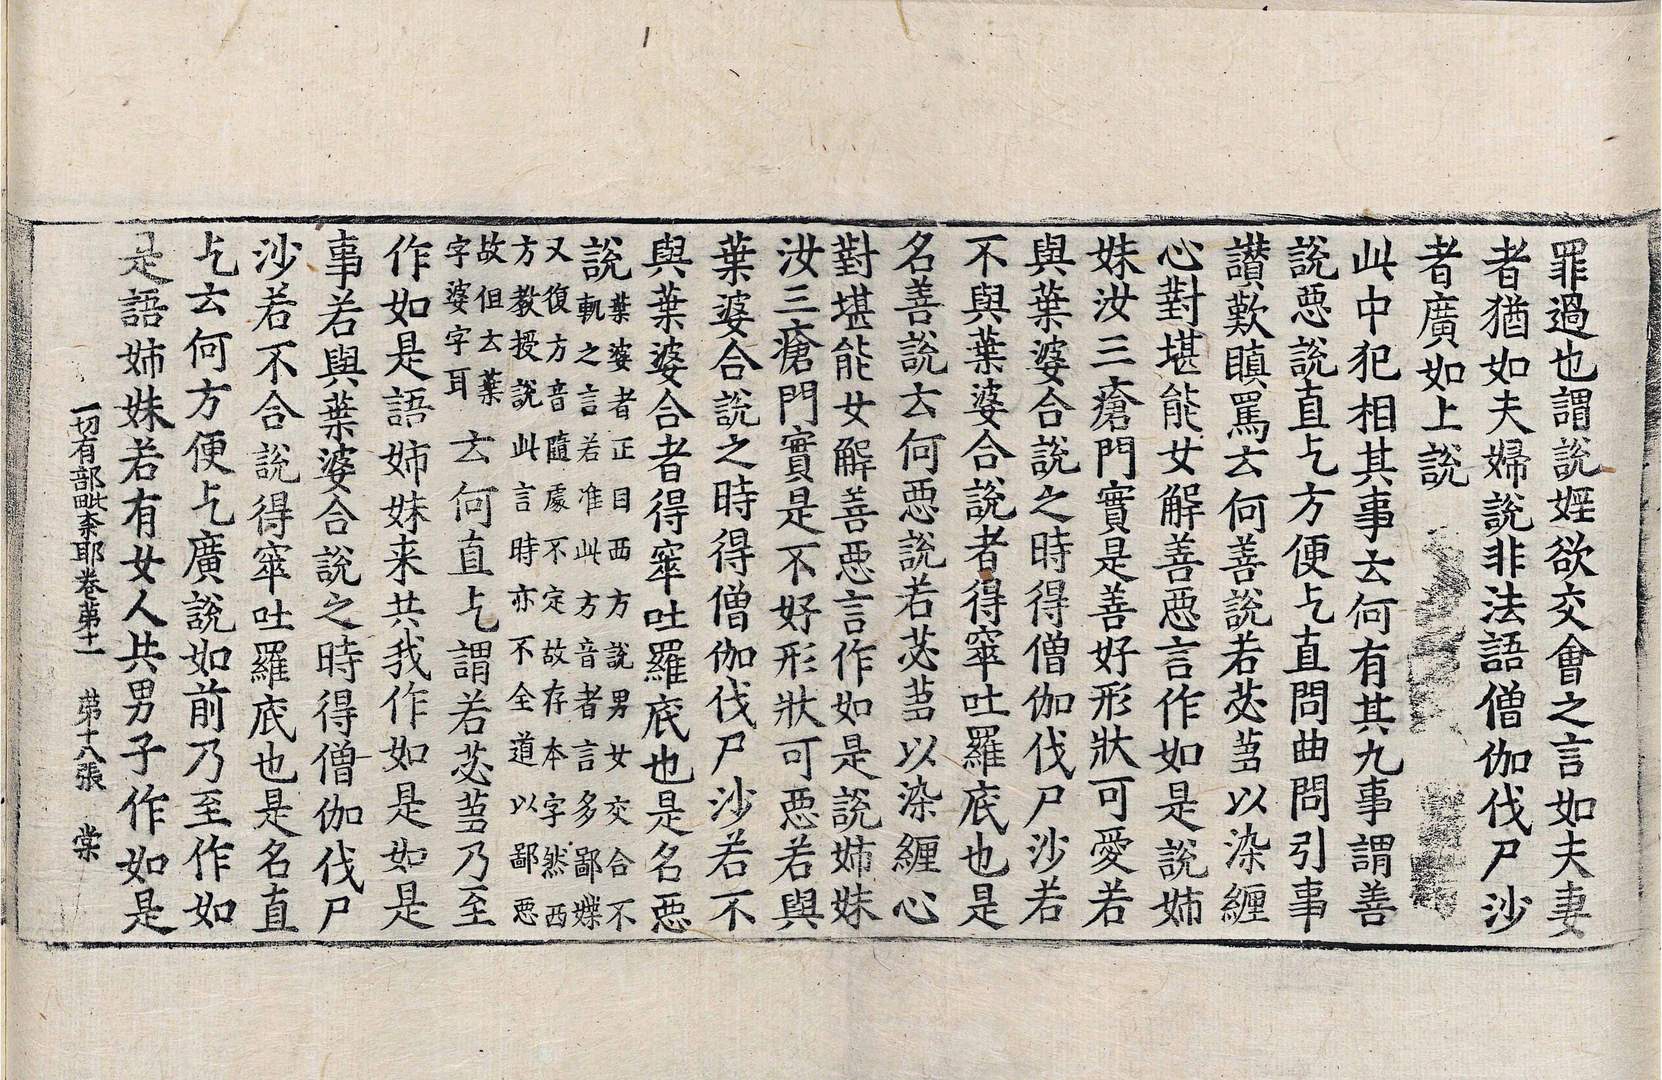 罪過也謂說婬欲交會之言如夫妻
者猶如夫婦說非法語僧伽伐尸沙
者廣如上說
此中犯相其事云何有其九事謂善
說惡說直乞方便乞直問曲問引事
讃歎瞋罵云何善說若苾芻以染纏
心對堪能女解善惡言作如是說姉
妹汝三瘡門實是善好形狀可愛若
與葉婆合說之時得僧伽伐尸沙若
不與葉婆合說者得窣吐羅底也是
名善說云何惡說若苾芻以染纏心
對堪能女解善惡言作如是說姉妹
汝三瘡門實是不好形狀可惡若與
葉婆合說之時得僧伽伐尸沙若不
與葉婆合者得窣吐羅底也是名惡
說葉婆者正目西方說男女交合不
軌之言若准此方音者言多鄙媟
又復方音隨處不定故存本字然西
方教授說此言時亦不全道以鄙惡
故但云葉
字婆字耳云何直乞謂若苾芻乃至
作如是語姉妹来共我作如是如是
事若與葉婆合說之時得僧伽伐尸
沙若不合說得窣吐羅底也是名直
乞云何方便乞廣說如前乃至作如
是語姉妹若有女人共男子作如是
一切有部毗奈耶卷苐十一 苐十八張 棠